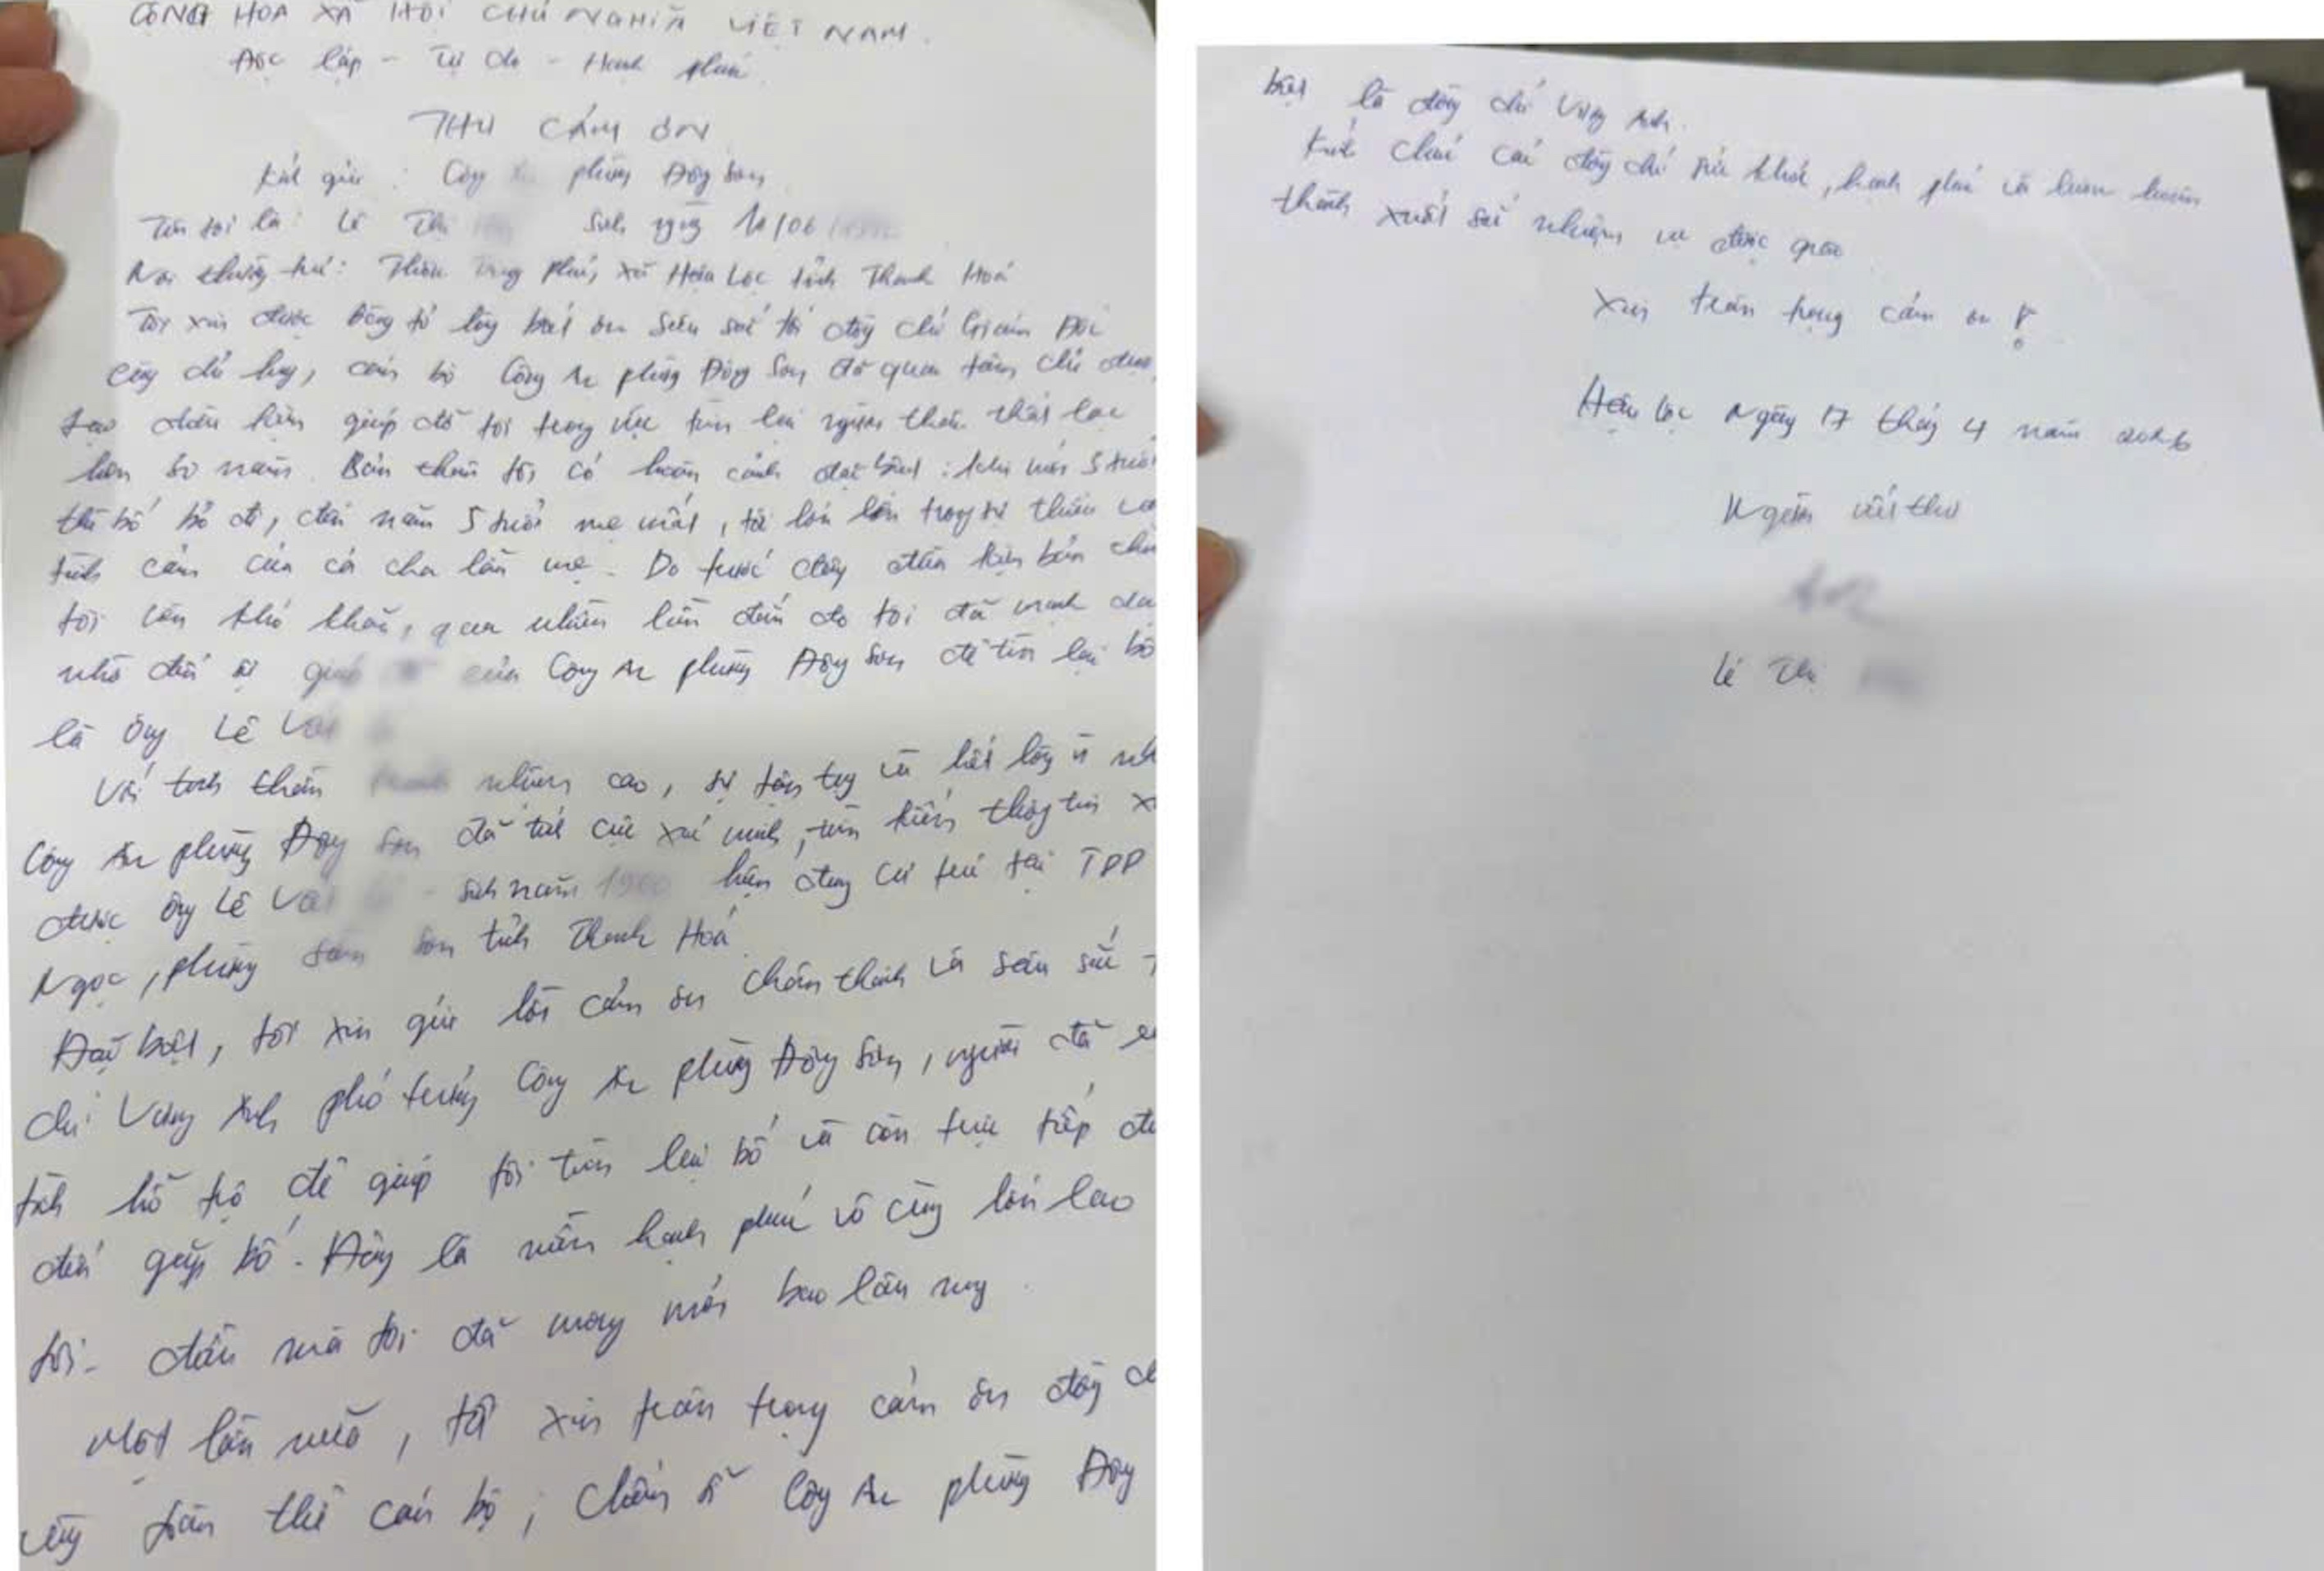 CỘNG HOÀ XÃ HỘI CHỦ NGHĨA VIỆT NAM.
Độc lập - Tự do - Hạnh phúc
THƯ CẢM ƠN
Kính gửi: Công phường Đông Sơn
Tên tôi là: Lê Thị Sinh ngày 11/06
Nơi thường trú: Thôn Phú, xã Hậu Lộc tỉnh Thanh Hoá
Tôi xin được bày tỏ lòng biết ơn sâu sắc tới đồng chí Giám Đốc
cùng chỉ huy, cán bộ Công An phường Đông Sơn đã quan tâm chỉ đạo,
tạo điều kiện giúp đỡ tôi trong việc tìm lại người thân thất lạc
hơn 30 năm. Bản thân tôi có hoàn cảnh đặc biệt: khi mới tuổi
thì bố bỏ đi, đến năm 5 tuổi mẹ mất, tôi lớn lên trong sự thiếu
tình cảm của cả cha lẫn mẹ. Do trước đây điều kiện bản
tôi còn khó khăn, qua nhiều lần đắn đo tôi đã mạnh dạn
nhờ đến sự giúp của Công An phường Đông Sơn để tìm lại bố
là ông Lê Văn
Với tinh thần nhiệm cao, sự tận tụy và hết lòng vì
Công An phường Đông Sơn đã tích cực xác minh, tìm kiếm thông tin
được ông Lê Văn - sinh năm hiện đang cư trú tại TDP
Ngọc, phường Sầm Sơn tỉnh Thanh Hoá
Đặc biệt, tôi xin gửi lời cảm ơn chân thành và sâu sắc
chí Vương Anh phó trưởng Công An phường Đông Sơn, người đã
tình hỗ trợ để giúp tôi tìm lại bố và còn trực tiếp
đến gặp bố. Đây là niềm hạnh phúc vô cùng lớn lao
tôi - điều mà tôi đã mong mỏi bao lâu nay.
Một lần nữa, tôi xin trân trọng cảm ơn đồng
cùng toàn thể cán bộ, chiến sĩ Công An phường Đông
biệt là đồng chí Vương Anh.
Kính chúc các đồng chí sức khoẻ, hạnh phúc và luôn hoàn
thành xuất sắc nhiệm vụ được giao
Xin trân trọng cảm ơn!
Hậu Lộc Ngày 17 tháng 4 năm 2026
Người viết thư
Lê Thị